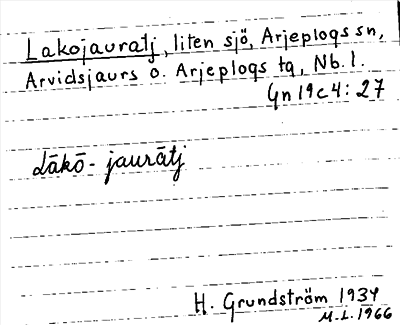 Lakojauratj, liten sjö, Arjeplogs sn,
Arvidsjaurs o. Arjeplogs tg, Nb. l.
Gn 19c4: 27
Låkō-jaurātj
H. Grundström 1934
M.L. 1966